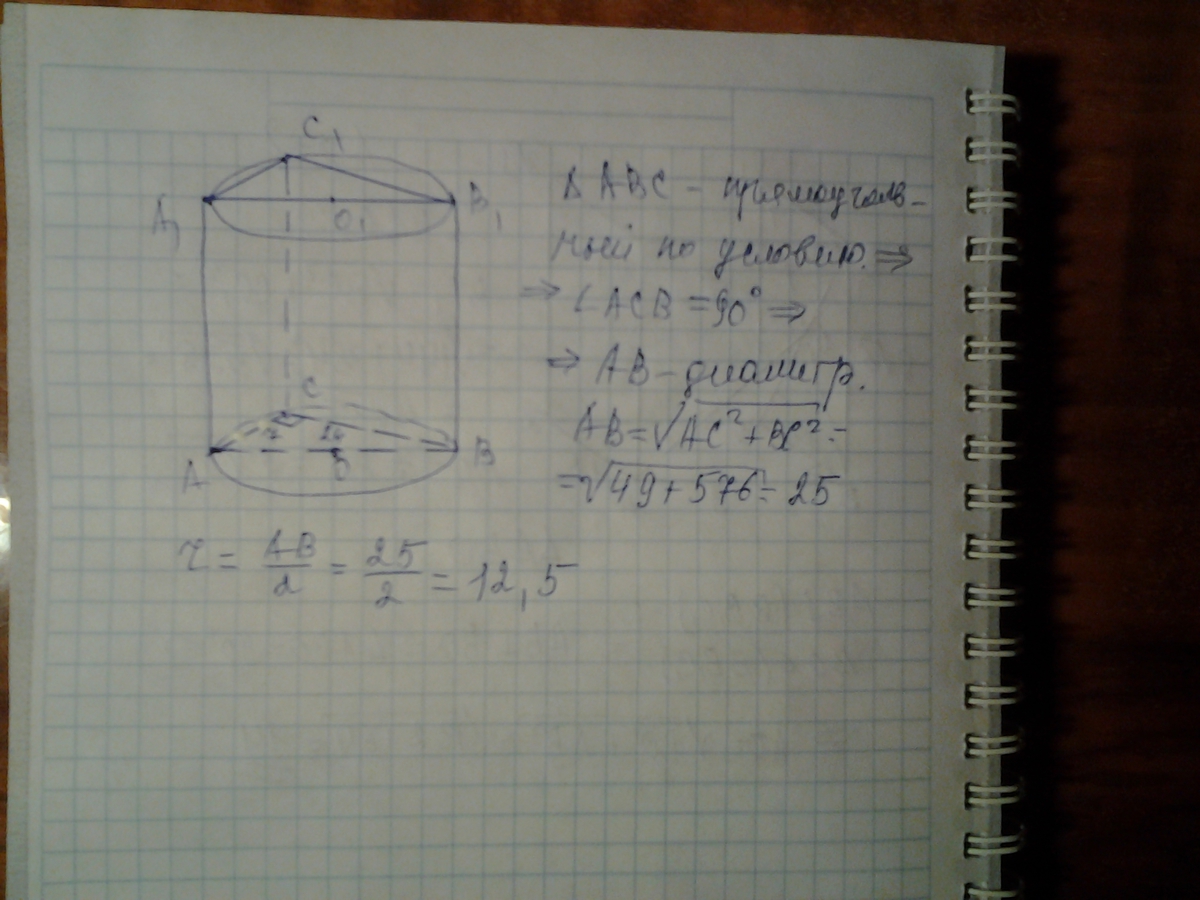 C₁
A₁ O₁ B₁
C
7 24
A B
Δ ABC - прямоуголь-
ный по условию. ⇒
⇒ ∠ACB = 90° ⇒
⇒ AB - диаметр.
AB = √AC² + BC² =
= √49 + 576 = 25
r = AB/2 = 25/2 = 12,5